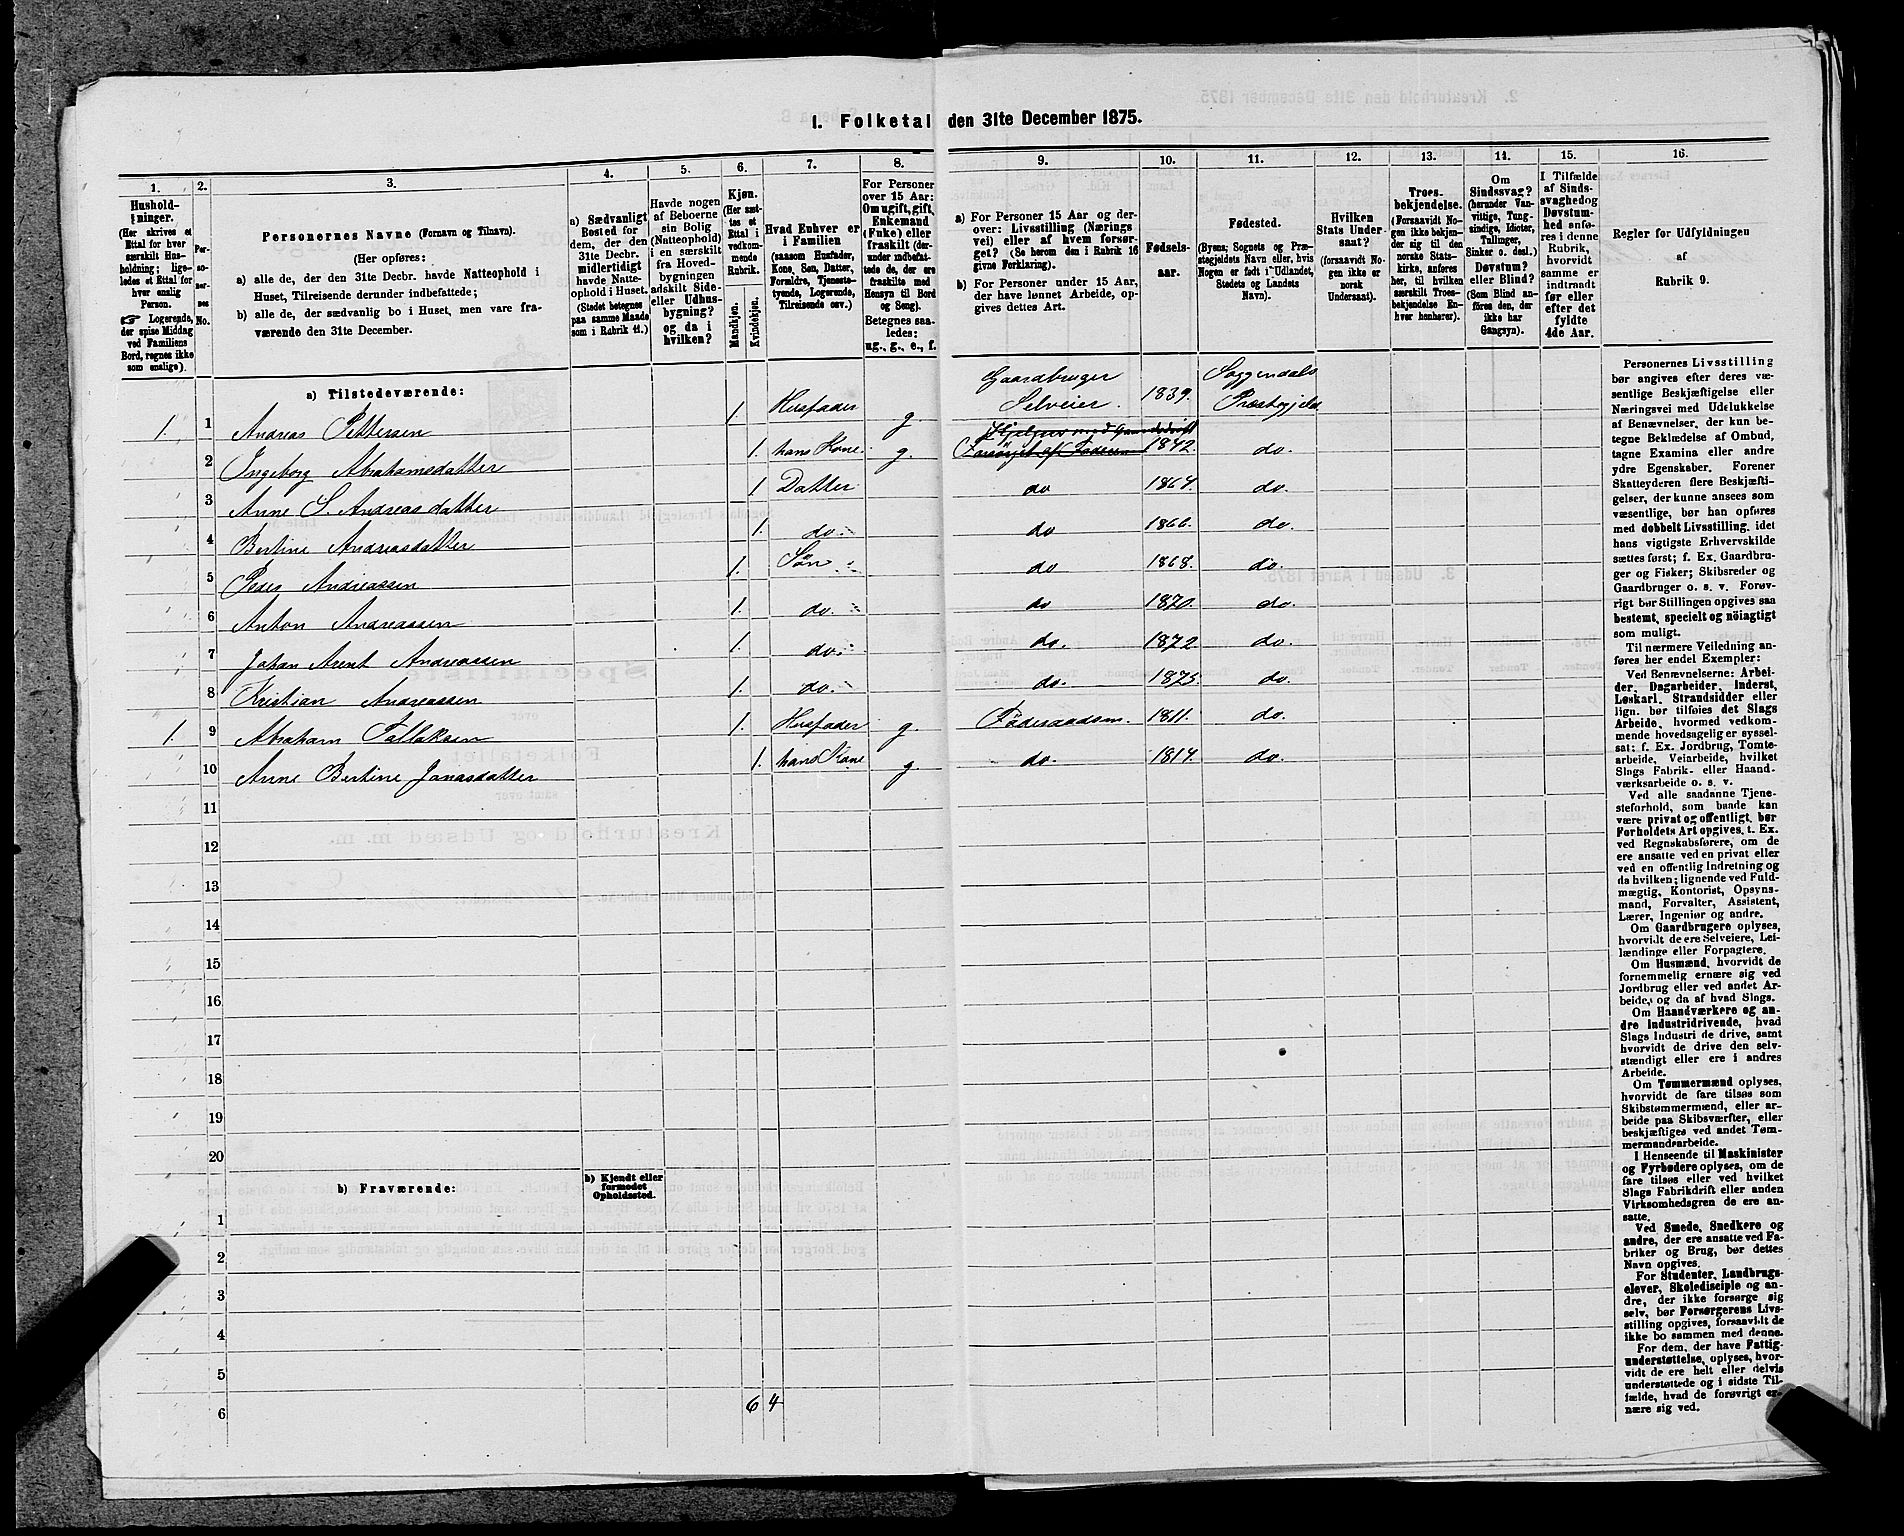 1. Folketal den 31te December 1875.
1. 2. 3. 4. 5. 6. 7. 8. 9. 10. 11. 12. 13. 14. 15. 16.
Hushold-
ninger.
(Her skrives et
Ettal for hver
særskilt Hus-
holdning; lige-
ledes et Ettal for
hver enslig
Person.
☞ Logerende,
der spise Middag
ved Familiens
Bord, regnes ikke
som enslige).
Per-
so-
ner-
nes
No.
Personernes Navne (Fornavn og Tilnavn).
(Her opføres:
a) alle de, der den 31te Decbr. havde Natteophold i
Huset, Tilreisende derunder indbefattede;
b) alle de, der sædvanlig bo i Huset, men vare fra-
værende den 31te December.
a) Sædvanligt
Bosted for
dem, der den
31te Decbr.
midlertidigt
havde Natte-
ophold i Huset.
(Stedet betegnes
paa samme Maade
som i Rubrik 11.)
Havde nogen
af Beboerne
sin Bolig
(Natteophold)
i en særskilt
fra Hoved-
bygningen
adskilt Side-
eller Udhus-
bygning?
og da i
hvilken?
Kjøn.
(Her sæt-
tes et
Ettal i
vedkom-
mende
Rubrik.
Mandkjøn.
Kvindekjøn.
Hvad Enhver er
i Familien
(saasom Husfader,
Kone, Søn, Datter,
Forældre, Tjeneste-
tyende, Logerende,
Tilreisende osv.)
For Personer
over 15 Aar:
Om ugift, gift,
Enkemand
(Enke) eller
fraskilt (der-
under indbefat-
tede de, der ere
fraskilte med
Hensyn til Bord
og Seng).
Betegnes saa-
ledes:
ug., g., e., f.
a) For Personer 15 Aar og der-
over: Livsstilling (Nærings
vei) eller af hvem forsør-
get? (Se herom den i Rubrik 16
givne Forklaring).
b) For Personer under 15 Aar,
der have lønnet Arbeide, op-
gives dettes Art.
Fødsels-
aar.
Fødested.
(Byens, Sognets og Præ-
stegjeldets Navn eller, hvis
Nogen er født i Udlandet,
Stedets og Landets
Navn).
Hvilken
Stats Under-
saat?
(forsaavidt No-
gen ikke er
norsk
Undersaat).
Troes-
bekjendelse.
(Forsaavidt No-
gen ikke bekjen-
der sig til den
norske Stats-
kirke, anføres
her, til hvilken
særskilt Troes-
bekjendelse En-
hver henhører).
Om
Sindssvag?
(herunder Van-
vittige, Tung-
sindige, Idioter,
Tullinger,
Sinker o. desl.)
Døvstum?
eller Blind?
(Som Blind an-
føres den, der
ikke har
Gangsyn).
I Tilfælde
af Sinds-
svaghed og
Døvstum-
hed anfø-
res i denne
Rubrik,
hvorvidt
samme er
indtraadt
før eller
efter det
fyldte
4de Aar.
Regler for Udfyldningen
af
Rubrik 9.
a) Tilstedeværende:
1. 1 Andreas Pettersen 1. Husfader g. Gaardbruger Selveier. 1839. Soggendals Præstegjeld
2 Ingeborg Abrahamsdatter 1. hans Kone g. 1842. do.
3 Anne S. Andreasdatter 1 Datter do 1864. do.
4 Bertine Andreasdatter 1. do. do 1866. do.
5 Peder Andreassen 1. Søn do 1868. do.
6 Anton Andreassen 1. do. do 1870. do.
7 Johan Arent Andreassen 1. do. do. 1872. do.
8 Kristian Andreassen 1. do. do. 1875. do.
1. 9 Abraham Tallaksen 1. Husfader g. Føderaadsm. 1811. do.
10 Anne Bertine Jonasdatter 1. hans Kone g. do. 1814. do.
11
12
13
14
15
16
17
18
19
20
b) Fraværende:
b) Kjendt eller
formodet
Opholdssted.
1
2
3
4
5
6
6 4
Personernes Livsstilling
bør angives efter deres væ-
sentlige Beskjæftigelse eller
Næringsvei med Udelukkelse
af Benævnelser, der kun be-
tegne Beklædelse af Ombud,
tagne Examina eller andre
ydre Egenskaber. Forener
Skatteyderen flere Beskjæfti-
gelser, der kunne ansees som
væsentlige, bør han opføres
med dobbelt Livsstilling, idet
hans vigtigste Erhvervskilde
sættes først; f. Ex. Gaardbru-
ger og Fisker; Skibsreder og
Gaardbruger o. s. v. Forøv-
rigt bør Stillingen opgives saa
bestemt, specielt og nöiagtigt
som muligt.
Til nærmere Veiledning an-
føres her endel Exempler:
Ved Benævnelserne: Arbei-
der, Dagarbeider, Inderst,
Løskarl, Strandsidder eller
lign. bør tilføies det Slags
Arbeide, hvormed vedkom-
mende hovedsagelig er syssel-
sat; f. Ex. Jordbrug, Tomte-
arbeide, Veiarbeide, hvilket
Slags Fabrik- eller Haand-
værksarbeide o. s. v.
Ved alle saadanne Tjene-
steforhold, som baade kan
være privat og offentligt, bør
Forholdets Art opgives, t. Ex.
ved Regnskabsførere, om de
ere ansatte ved en privat eller
ved en offentlig Indretning og
da hvilken; lignende ved Fuld-
mægtig, Kontorist, Opsyns-
mand, Forvalter, Assistent,
Lærer, Ingeniør og andre.
Om Gaardbrugere oplyses,
hvorvidt de ere Selveiere, Lei-
lændinge eller Forpagtere.
Om Husmænd, hvorvidt de
fornemmelig ernære sig ved
Jordbrug eller ved andet Ar-
beide, og da af hvad Slags.
Om Haandværkere og an-
dre Industridrivende, hvad
Slags Industri de drive, samt
hvorvidt de drive den selv-
stændigt eller ere i andres
Arbeide.
Om Tømmermænd oplyses,
hvorvidt de fare tilsøs som
Skibstømmermænd, eller ar-
beide paa Skibsværfter, eller
beskjæftiges ved andet Tøm-
mermandsarbeide.
I Henseende til Maskinister
og Fyrbødere oplyses, om de
fare tilsøs eller ved hvilket
Slags Fabrikdrift eller anden
Virksomhedsgren de ere an-
satte.
Ved Smede, Snedkere og
andre, der ere ansatte ved Fa-
briker og Brug, bør dettes
Navn opgives.
For Studenter, Landbrugs-
elever, Skoledisciple og an-
dre, der ikke forsørge sig
selv, bør Forsørgerens Livs-
stilling opgives, forsaavidt de
ikke bo sammen med denne.
For dem, der have Fattig-
understøttelse, oplyses, hvor-
vidt de ere helt eller delvis
understøttede og i sidste Til-
fælde, hvad de forøvrigt er-
nære sig ved.